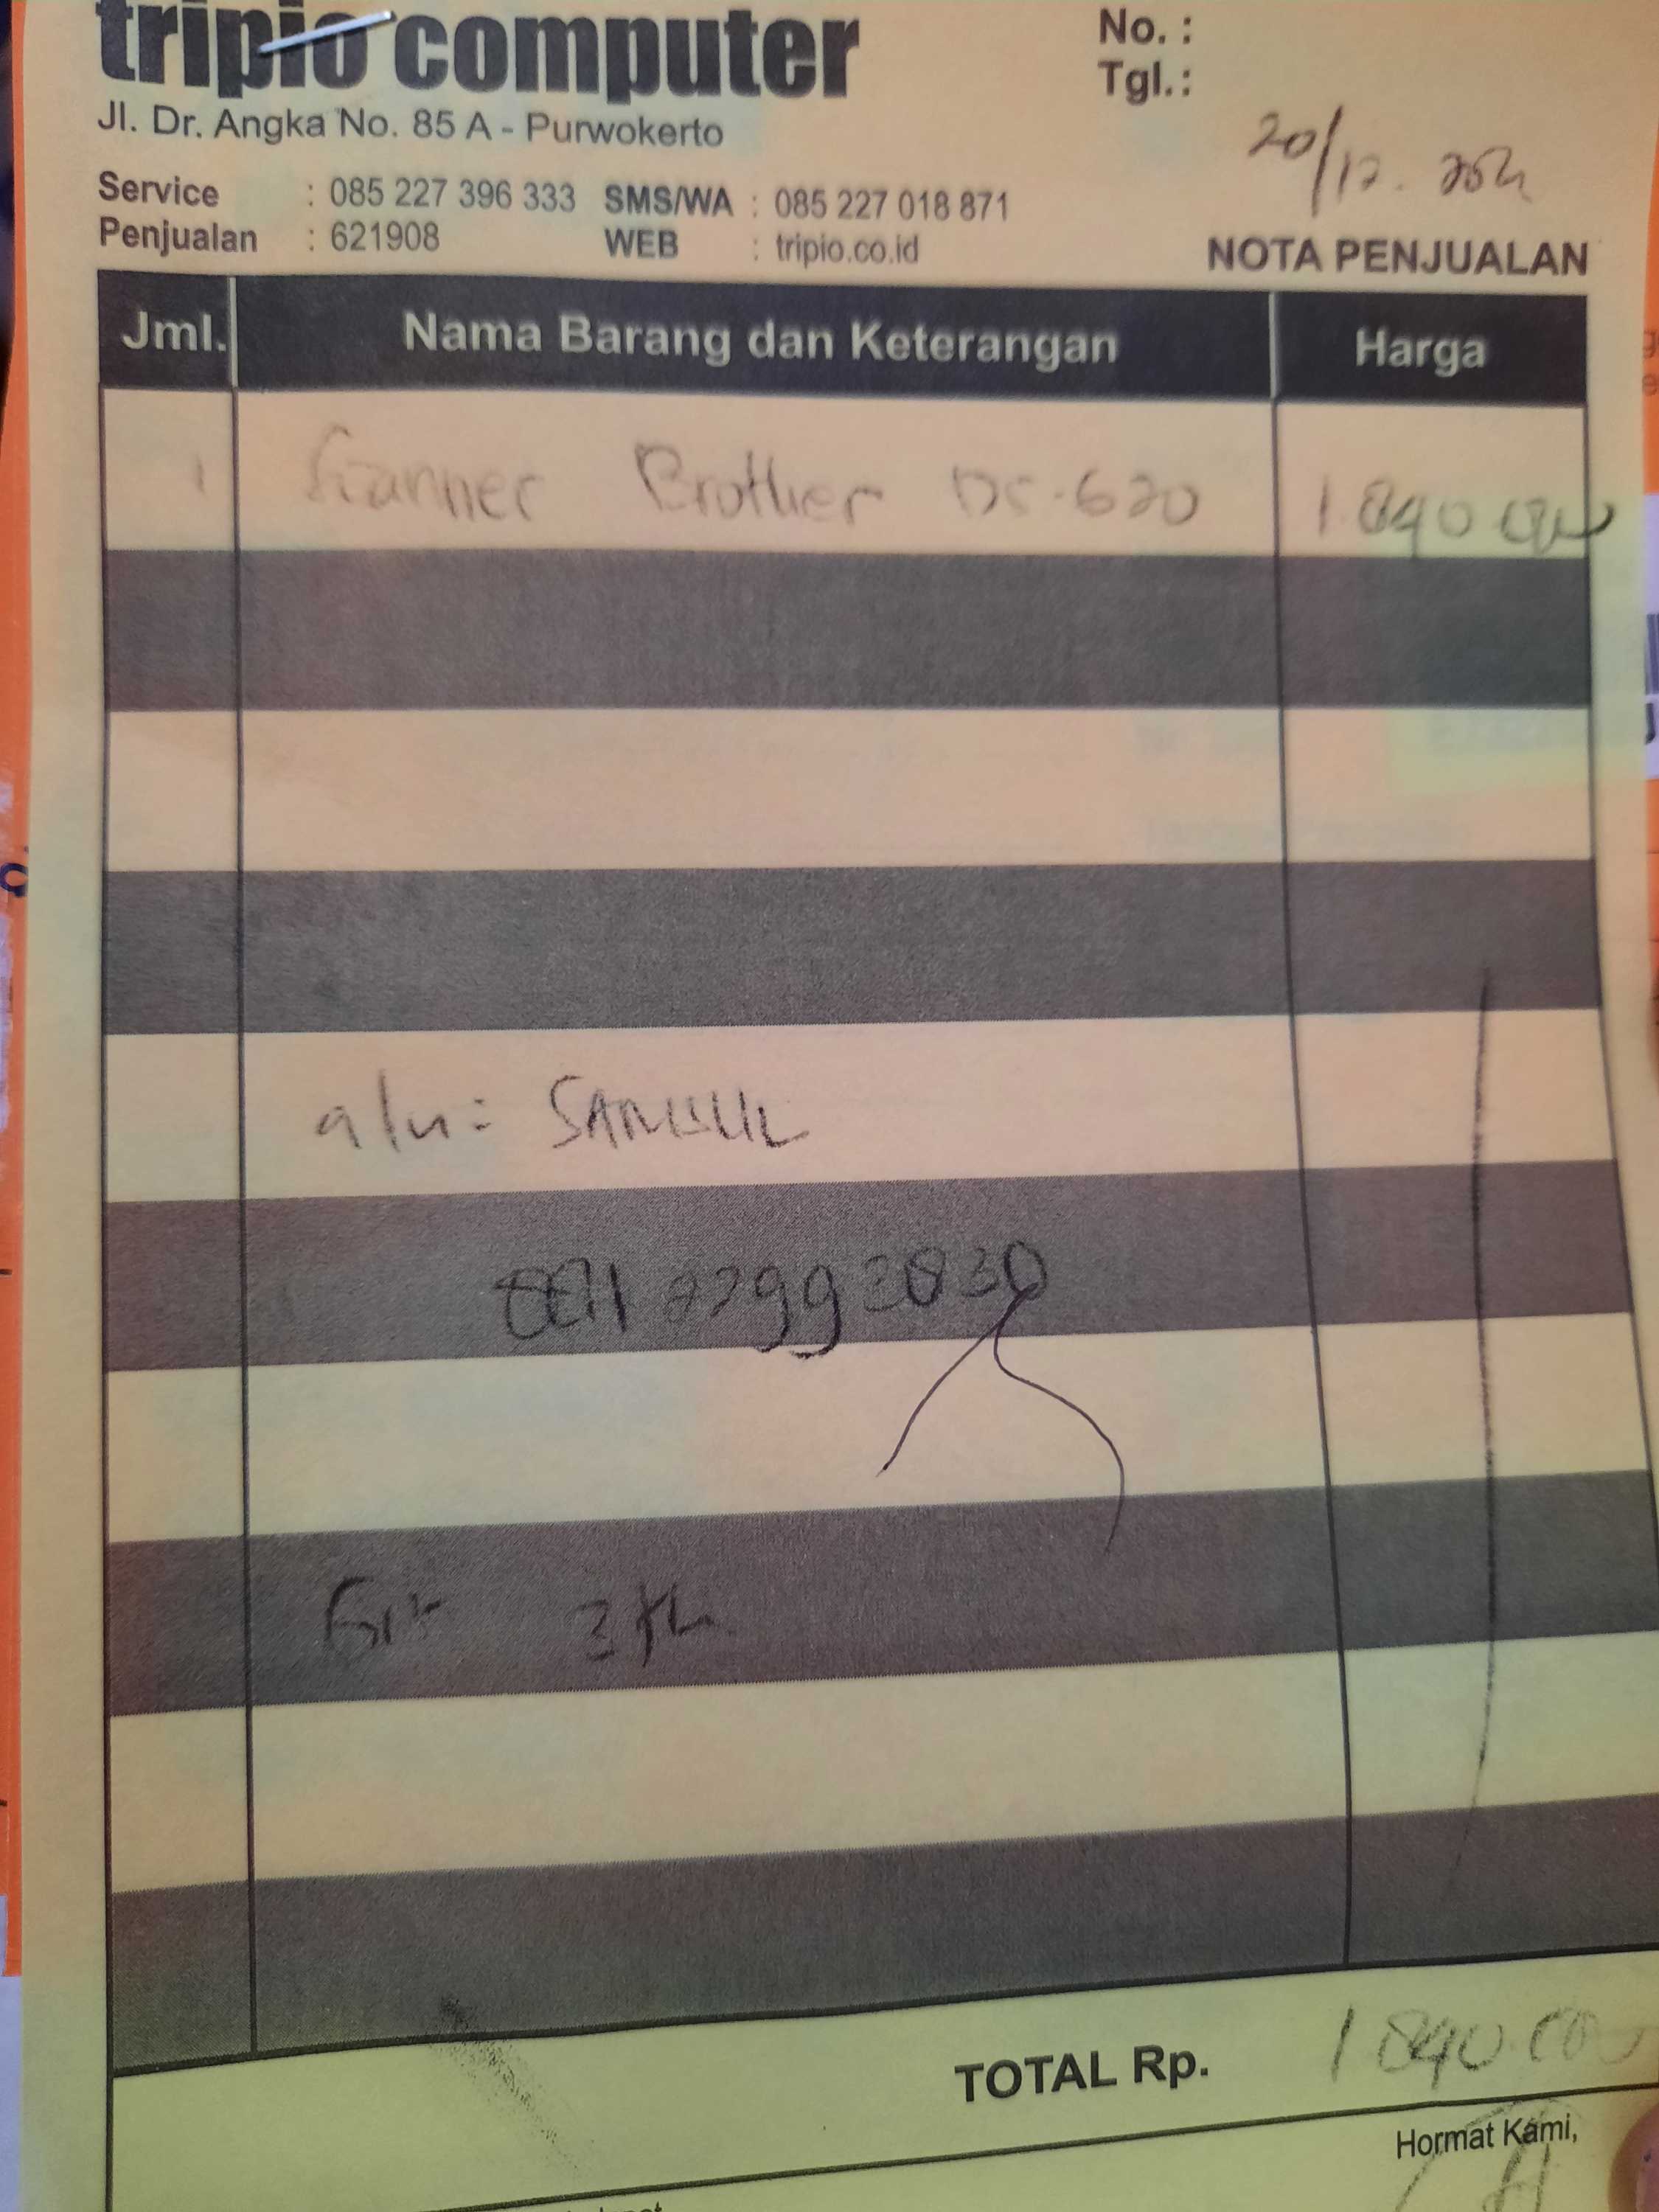 tripio computer
No. :
Tgl. :
Jl. Dr. Angka No. 85 A - Purwokerto
20/12.
Service : 085 227 396 333 SMS/WA : 085 227 018 871
Penjualan : 621908 WEB : tripio.co.id
NOTA PENJUALAN
Jml. Nama Barang dan Keterangan Harga
1 Scanner Brother DS-620 1.840.000
a/n:
3 th
TOTAL Rp. 1.840.000
Hormat Kami,